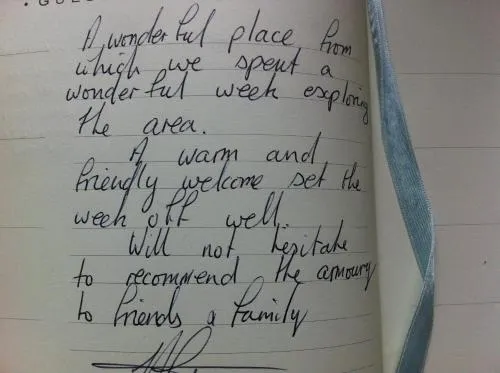 A wonderful place from
which we spent a
wonderful week exploring
the area.
A warm and
friendly welcome set the
week off well.
Will not hesitate
to recommend the armoury
to friends & family